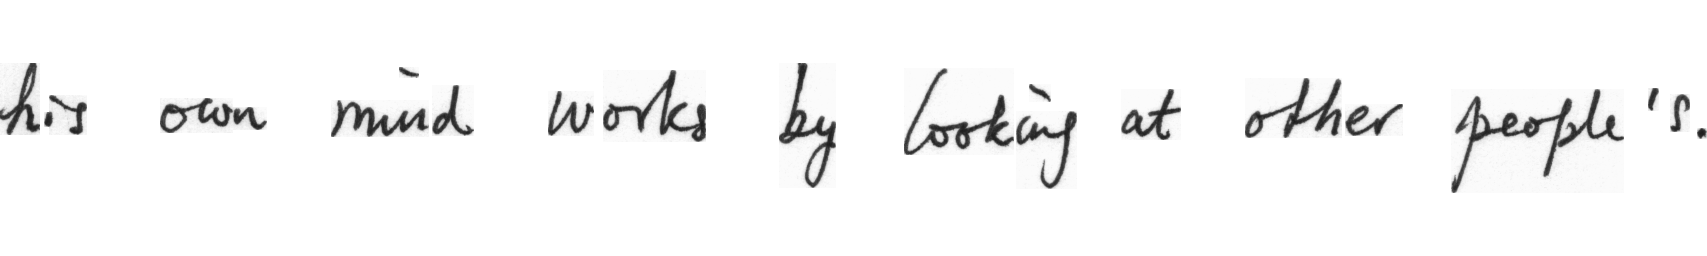 his own mind works by looking at other people's.